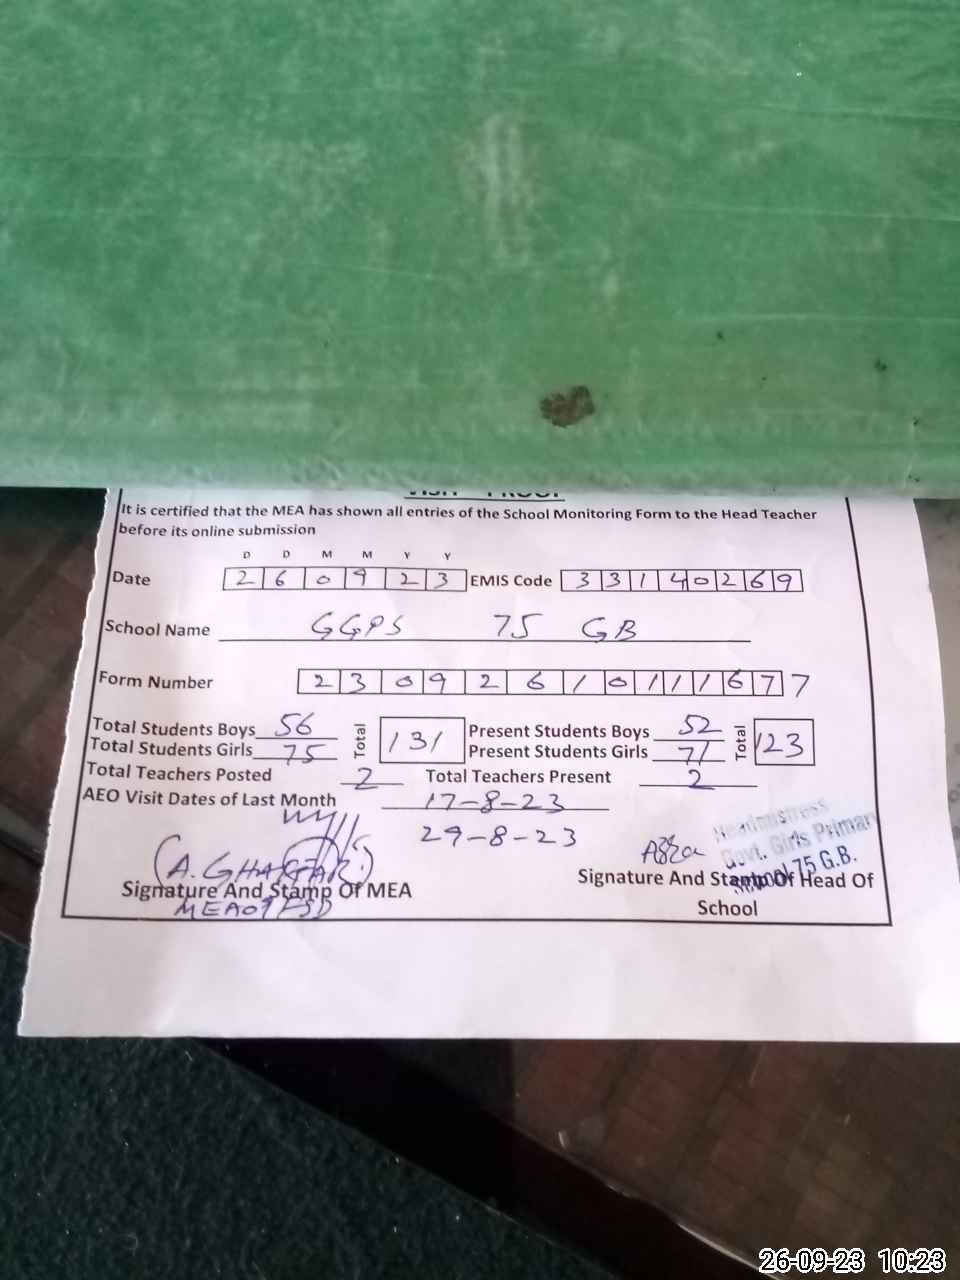 VISIT PROOF
It is certified that the MEA has shown all entries of the School Monitoring Form to the Head Teacher
before its online submission
D D M M Y Y
Date 2 6 0 9 2 3 EMIS Code 3 3 1 4 0 2 6 9
School Name GGPS 75 GB
Form Number 2 3 0 9 2 6 1 0 1 1 1 6 7 7
Total Students Boys 56 Total 131 Present Students Boys 52 Total 123
Total Students Girls 75 Present Students Girls 71
Total Teachers Posted 2 Total Teachers Present 2
AEO Visit Dates of Last Month 17-8-23
29-8-23
Headmistress
Govt. Girls Primary
School 75 G.B.
Signature And Stamp Of MEA Signature And Stamp Of Head Of
School
26-09-23 10:23